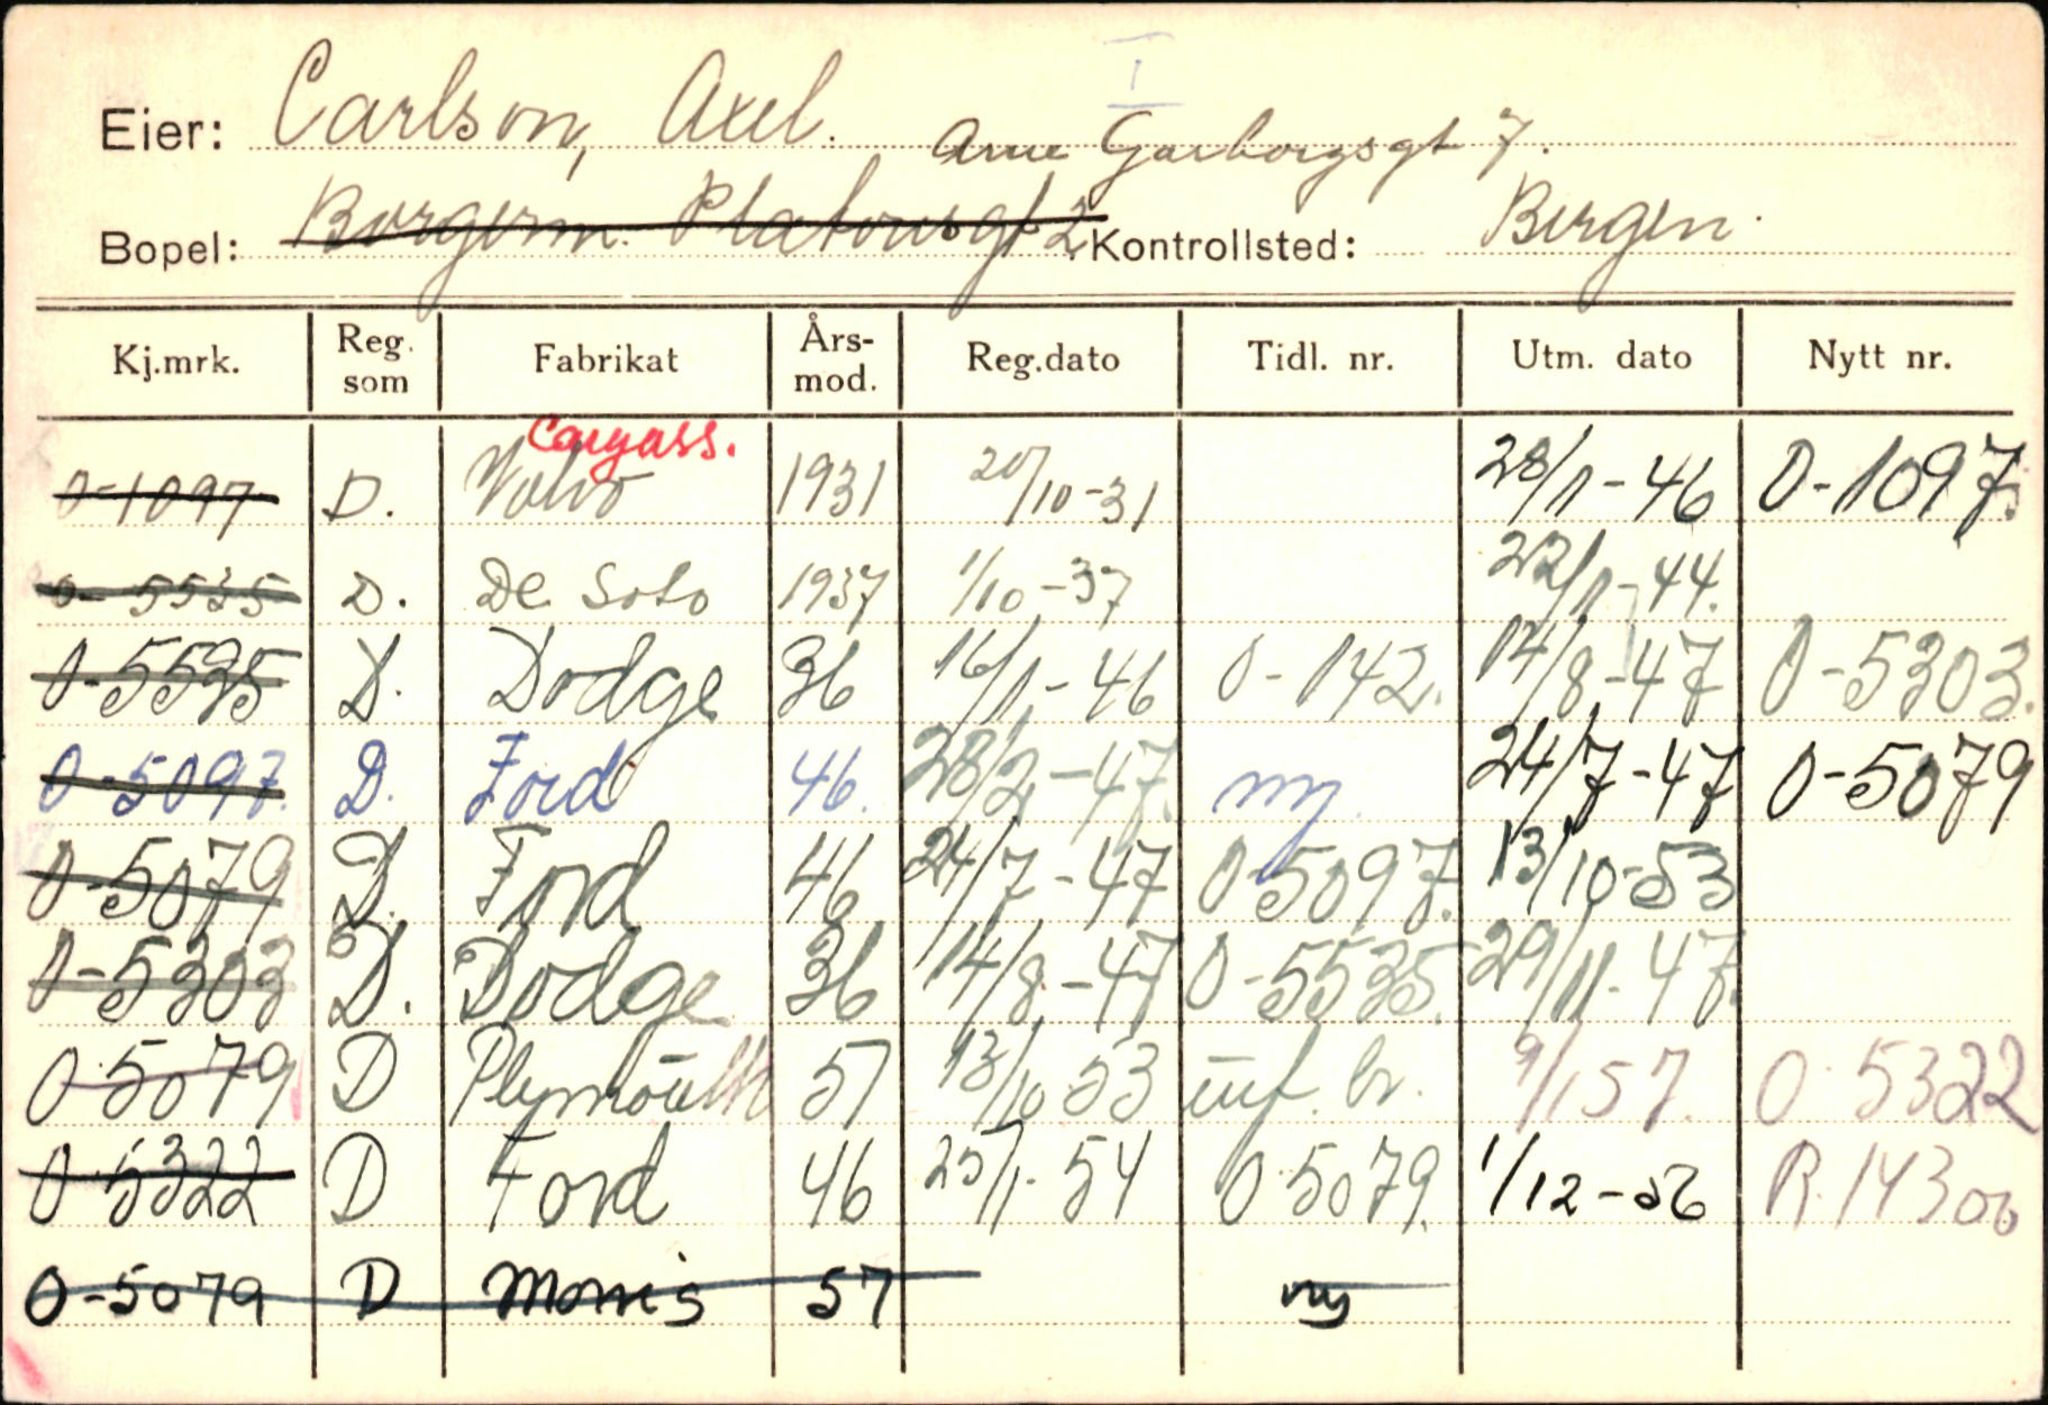 I
Eier: Carlson, Axel. Arne Garborgsgt 7.
Bopel: Borgerm. Platousgt 2. Kontrollsted: Bergen.
Kj.mrk. Reg. som Fabrikat Års-mod. Reg.dato Tidl. nr. Utm. dato Nytt nr.
O-1097 D. Volvo 1931 20/10-31 28/1-46 O-1097.
O-5535 D. De Soto 1937 1/10-37 22/1-44.
O-5535 D. Dodge 36 16/1-46 O-142. 14/8-47 O-5303.
O-5097. D. Ford 46. 28/2-47. ny. 24/7-47 O-5079
O-5079 D. Ford 46 24/7-47 O-5097. 13/10-53
O-5303 D. Dodge 36 14/8-47 O-5535. 29/11-47.
O-5079 D Plymouth 51 13/10 53 inf. br. 9/1 57. O-5322
O-5322 D Ford 46 25/1-54 O-5079. 1/12-56 R-14300
O-5079 D Morris 57 ny